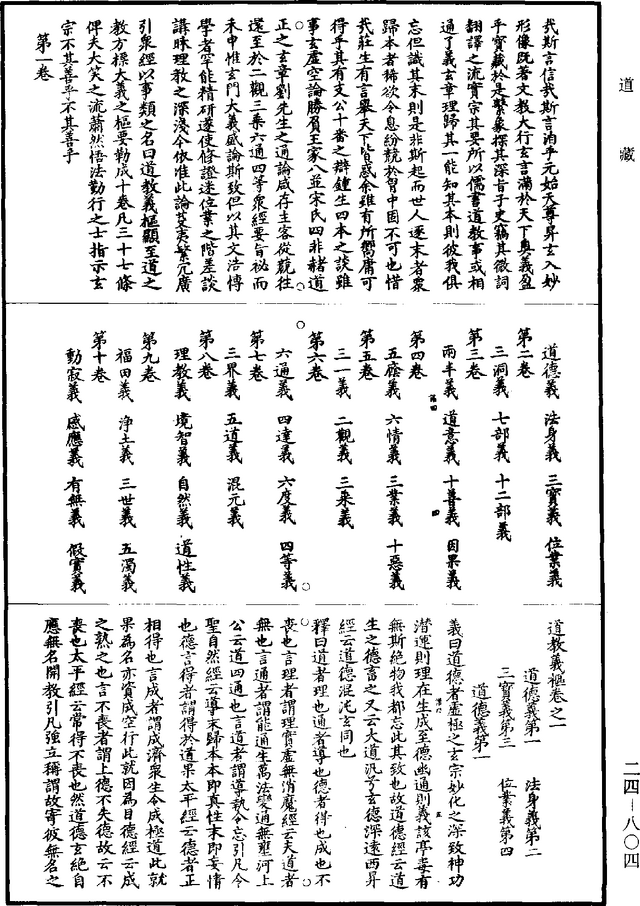 道藏
我斯言信我斯言洎乎元始天尊昇玄入妙
形像既著文教大行玄言滿於天下奧義盈
乎寶藏於是繫象探其深旨子史竊其微詞
翻譯之流實宗其要所以儒書道教事或相
通了義玄章理歸其一能知其本則彼我俱
忘但識其末則是非斯起而世人逐末者衆
歸本者稀欲令息紛競於胷中固不可也惜
哉莊生有言舉天下皆惑余雖有所嚮庸可
得乎其有支公十番之辯鍾生四本之談雖
事玄虛空論勝負王家八並宋氏四非赭道
正之玄章劉先生之通論咸存主客從競往
還至於二觀三乘六通四等衆經要旨祕而
未申惟玄門大義盛論斯致但以其文浩博
學者罕能精研遂使修證迷位業之階差談
講昧理教之深淺今依准此論芟夷繁冗廣
引衆經以事類之名曰道教義樞顯至道之
教方標大義之樞要勒成十卷凡三十七條
俾夫大笑之流蕭然悟法勤行之士指示玄
宗不其善乎不其善乎
第一卷
道德義 法身義 三寶義 位業義
第二卷
三洞義 七部義 十二部義
第三卷
兩半義 道意義 十善義 因果義
第四卷
五廕義 六情義 三業義 十惡義
第五卷
三一義 二觀義 三乘義
第六卷
六通義 四達義 六度義 四等義
第七卷
三界義 五道義 混元義
第八卷
理教義 境智義 自然義 道性義
第九卷
福田義 淨土義 三世義 五濁義
第十卷
動寂義 感應義 有無義 假實義
道教義樞卷之一
道德義第一 法身義第二
三寶義第三 位業義第四
道德義第一
義曰道德者虛極之玄宗妙化之深致神功
潛運則理在生成至德幽通則義該亭毒有
無斯絶物我都忘此其致也故道德經云道
生之德畜之又云大道汎兮玄德深遠西昇
經云道德混沌玄同也
釋曰道者理也通者導也德者得也成也不
喪也言理者謂理實虛無消魔經云夫道者
無也言通者謂能通生萬法變通無壅河上
公云道四通也言道者謂導執令忘引凡令
聖自然經云導末歸本本即真性末即妄情
也德言得者謂得於道果太平經云德者正
相得也言成者謂成濟衆生令成極道此就
果為名亦資成空行此就因為目德經云成
之熟之也言不喪者謂上德不失德故云不
喪也太平經云常得不喪也然道德玄絶自
應無名開教引凡強立稱謂故寄彼無名之
二四—八〇四